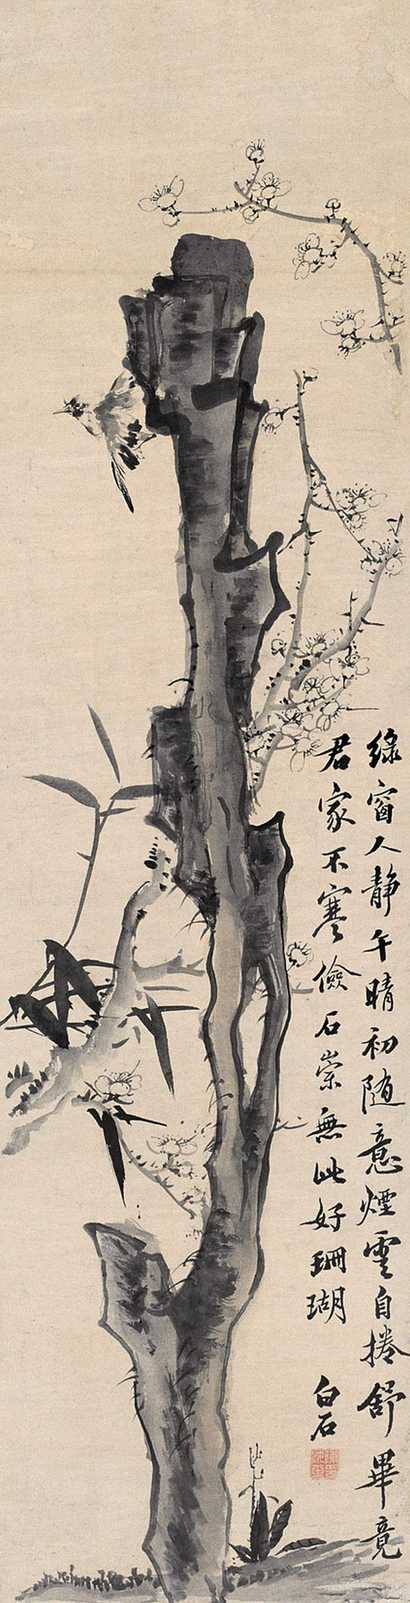 綠窗人靜午晴初隨意煙雲自捲舒畢竟
君家不寒儉石崇無此好珊瑚
白石